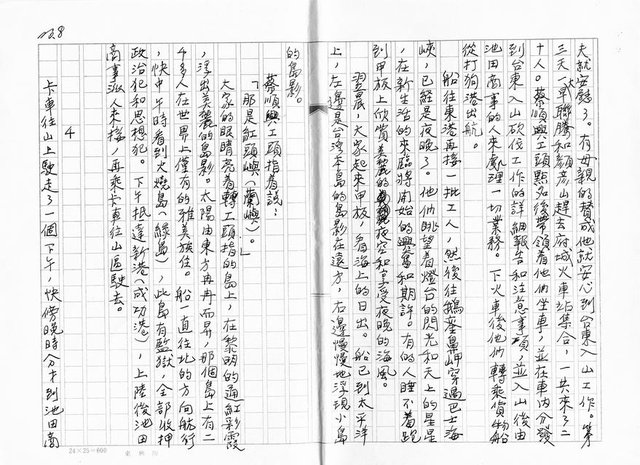 夫就安慰了。有母親的贊成他就安心到台東入山工作。第
三天，卓聯騰和顏彥山趕去府城火車站集合，一共來了二
十人。蔡順興工頭點名後帶領着他們坐車，並在車內分發
到台東入山砍伐工作的詳細報告和注意事項，並入山後由
池田商事的人來處理一切業務。下火車後他們轉乘貨物船
從打狗港出航。
船往東港再接一批工人，然後往鵝鑾鼻岬穿過巴士海
峽，已經是夜晚了。他們眺望着燈台的閃光和天上的星星
，在新生活的來臨將開始的興奮和期許。有的人睡不着跑
到甲板上欣賞美麗的夜空和享受夜晚的海風。
翌晨，大家起來甲板，看海上的日出。船已到太平洋
上，左邊是台灣本島的島影在遠方，右邊慢慢地浮現小島
的島影。
蔡順興工頭指着說：
「那是紅頭嶼（蘭嶼）。」
大家的眼睛亮着轉工頭指的島上，在黎明的通紅彩霞
，浮出美麗的島影。太陽由東方冉冉而昇，那個島上有二
4多人在世界上僅有的雅美族住。船一直往北的方向航行
，快中午時看到火燒島（綠島），此島有監獄，全部收押
政治犯和思想犯。下午抵達新港（成功港），上陸後池田
商事派人來接，再乘卡車往山區駛去。
4
卡車往山上駛走了一個下午，快傍晚時分才到池田商
24×25=600